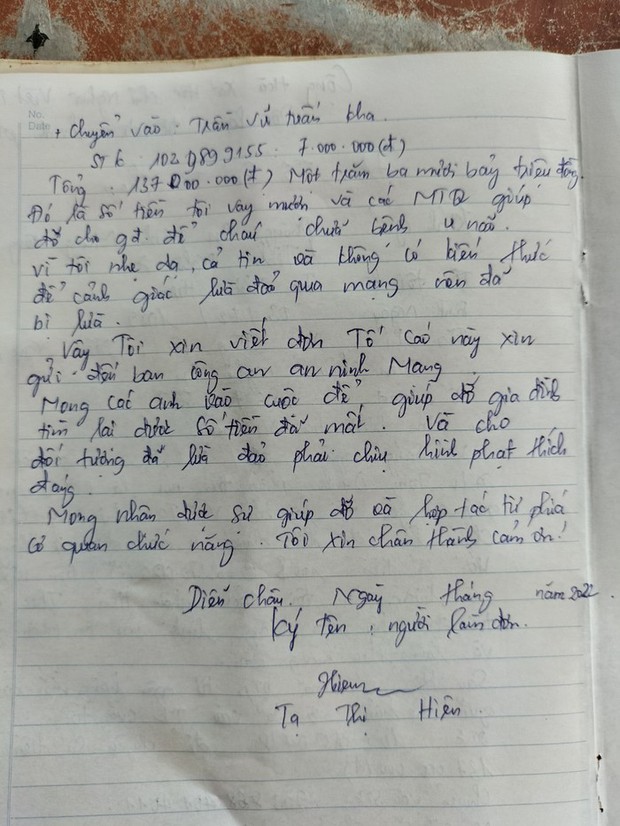 No:
Date
+ chuyển vào: Trần vũ tuấn kha.
STK: 102 9899155: 7.000.000 (đ)
Tổng: 137.000.000 (đ) Một trăm ba mươi bảy triệu đồng.
Đó là số tiền tôi vay mượn và các MTQ giúp
đỡ cho gđ. để cháu chữa bệnh u não.
vì tôi nhẹ dạ, cả tin và không có kiến thức
để cảnh giác lừa đảo qua mạng nên đã
bị lừa.
Vậy Tôi xin viết đơn Tố cáo này xin
gửi đến ban công an an ninh Mạng.
Mong các anh vào cuộc để giúp đỡ gia đình
tìm lại được số tiền đã mất. và cho
đối tượng đã lừa đảo phải chịu hình phạt thích
đáng.
Mong nhận được sự giúp đỡ và hợp tác từ phía
cơ quan chức năng. Tôi xin chân thành cảm ơn!
Diễn châu. Ngày tháng năm 2022.
ký tên, người làm đơn.
Hiên
Tạ Thị Hiên.